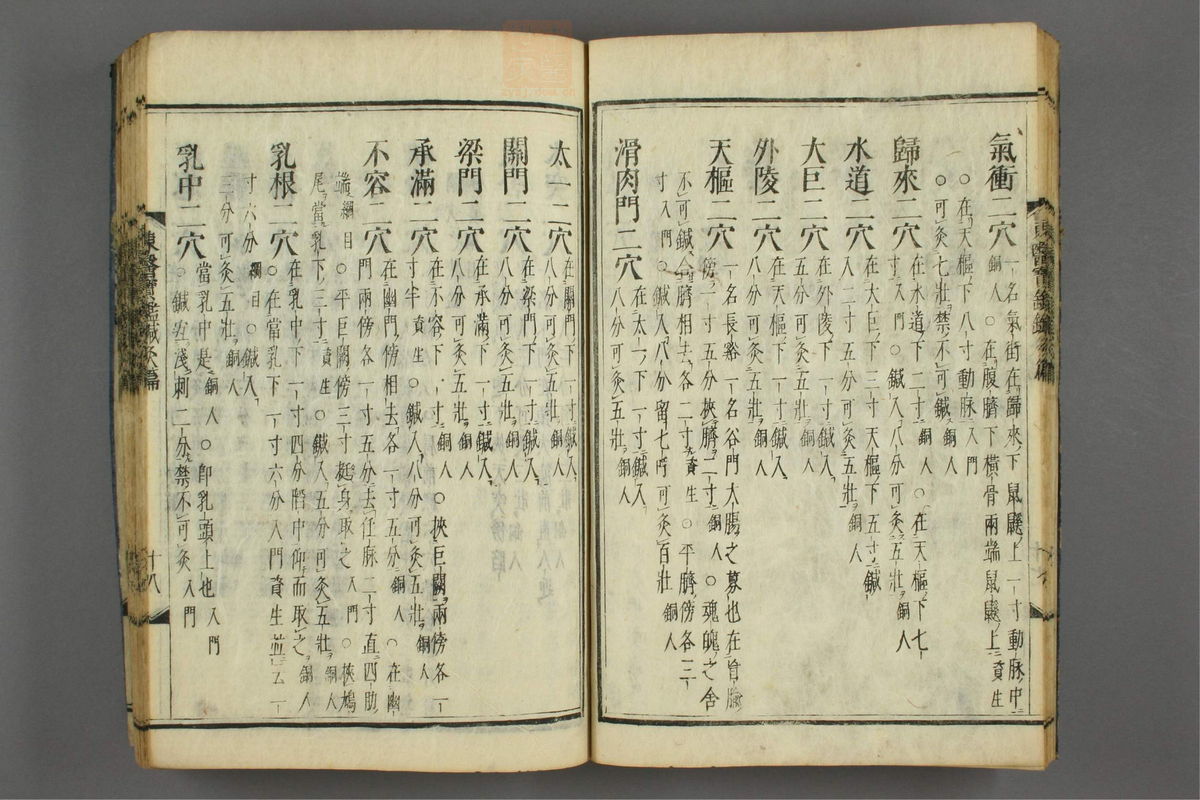 氣衝二穴一名氣街在歸來下鼠鼷上一寸動脉中
銅人○在腹臍下橫骨兩端鼠鼷上資生
○在天樞下八寸動脉入門
○可灸七壯禁不可鍼銅人
歸來二穴在水道下二寸銅人○在天樞下七
寸入門○鍼入八分可灸五壯銅人
水道二穴在大巨下三寸天樞下五寸鍼
入二寸半可灸五壯銅人
大巨二穴在外陵下一寸鍼入
五分可灸五壯銅人
外陵二穴在天樞下一寸鍼入
八分可灸五壯銅人
天樞二穴一名長谿一名谷門大腸之募也在肓腧
傍一寸五分挾臍二寸銅人○魂魄之舍
不可鍼合臍相去各二寸資生○平臍傍各三
寸入門○鍼入八分留七呼可灸百壯銅人
滑肉門二穴在太一下一寸鍼入
八分可灸五壯銅人
太一二穴在關門下一寸鍼入
八分可灸五壯銅人
關門二穴在梁門下一寸鍼入
八分可灸五壯銅人
梁門二穴在承滿下一寸鍼入
八分可灸五壯銅人
承滿二穴在不容下一寸銅人○挾巨闕兩傍各一
寸半資生○鍼入八分可灸五壯銅人
不容二穴在幽門傍相去各一寸五分銅人○在幽
門兩傍各一寸五分去任脉二寸直四肋
端綱目○平巨闕傍三寸起身取之入門○挾鳩
尾當乳下三寸資生○鍼入五分可灸五壯銅人
乳根二穴在乳中下一寸四分陷中仰而取之銅人
○在當乳下一寸六分入門資生並五一
寸六分綱目○鍼入
三分可灸五壯銅人
乳中二穴當乳中是銅人○卽乳頭上也入門
○鍼宜淺刺二分禁不可灸入門
東醫寶鑑鍼灸篇
十八